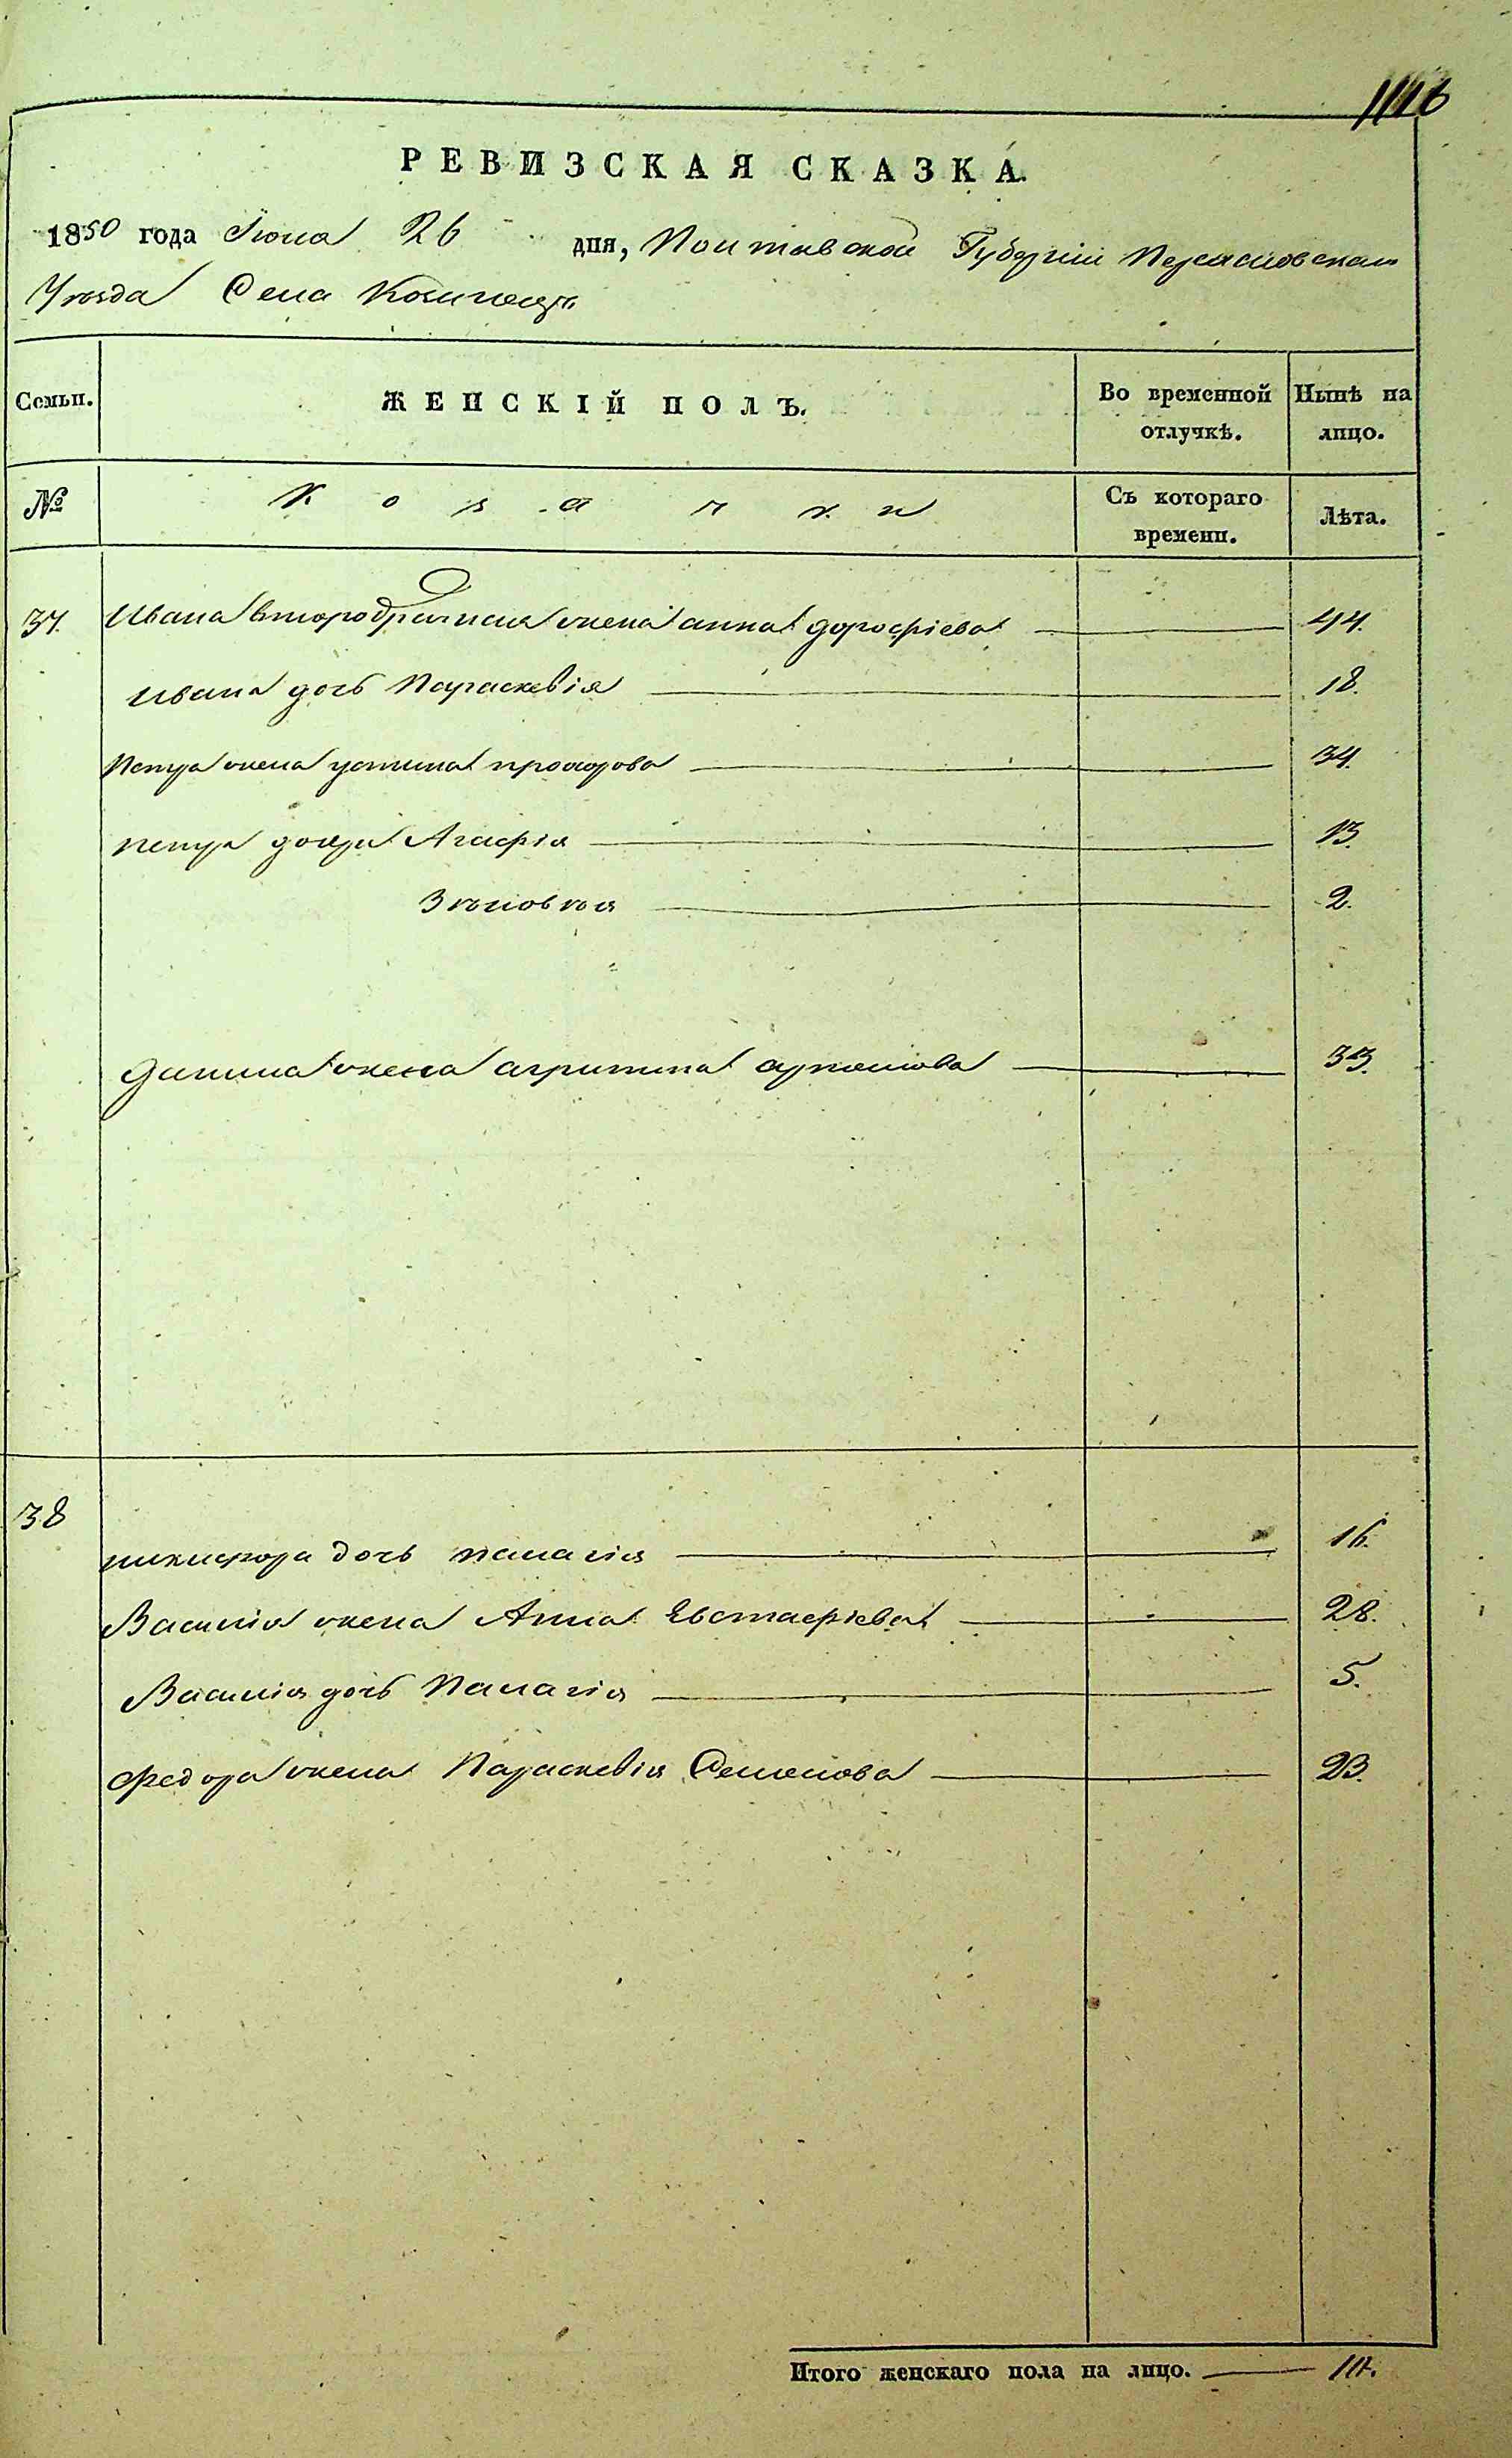 РЕВИЗСКАЯ СКАЗКА.
1850 года Іюна 26 дня, Полтавской Губерніи Переяславскаго
Уѣзда Села
Семьи. ЖЕНСКІЙ ПОЛЪ. Во временной отлучкѣ. Нынѣ на лицо.
№ Козачки Съ котораго времени. Лѣта.
37. Ивана второбрачная жена анна дорофіева 44.
Ивана дочь Параскевія 18.
Петра жена устина прохорова 34.
петра дочери Агафія 13.
Зѣновѣя 2.
данила жена агрипина артемова 33.
38
никифора дочь палагія 16.
Василія жена Анна Евстафіева 28.
Василія дочь Палагія 5.
Федора жена Параскевія Семенова 23.
Итого женскаго пола на лицо. 10.